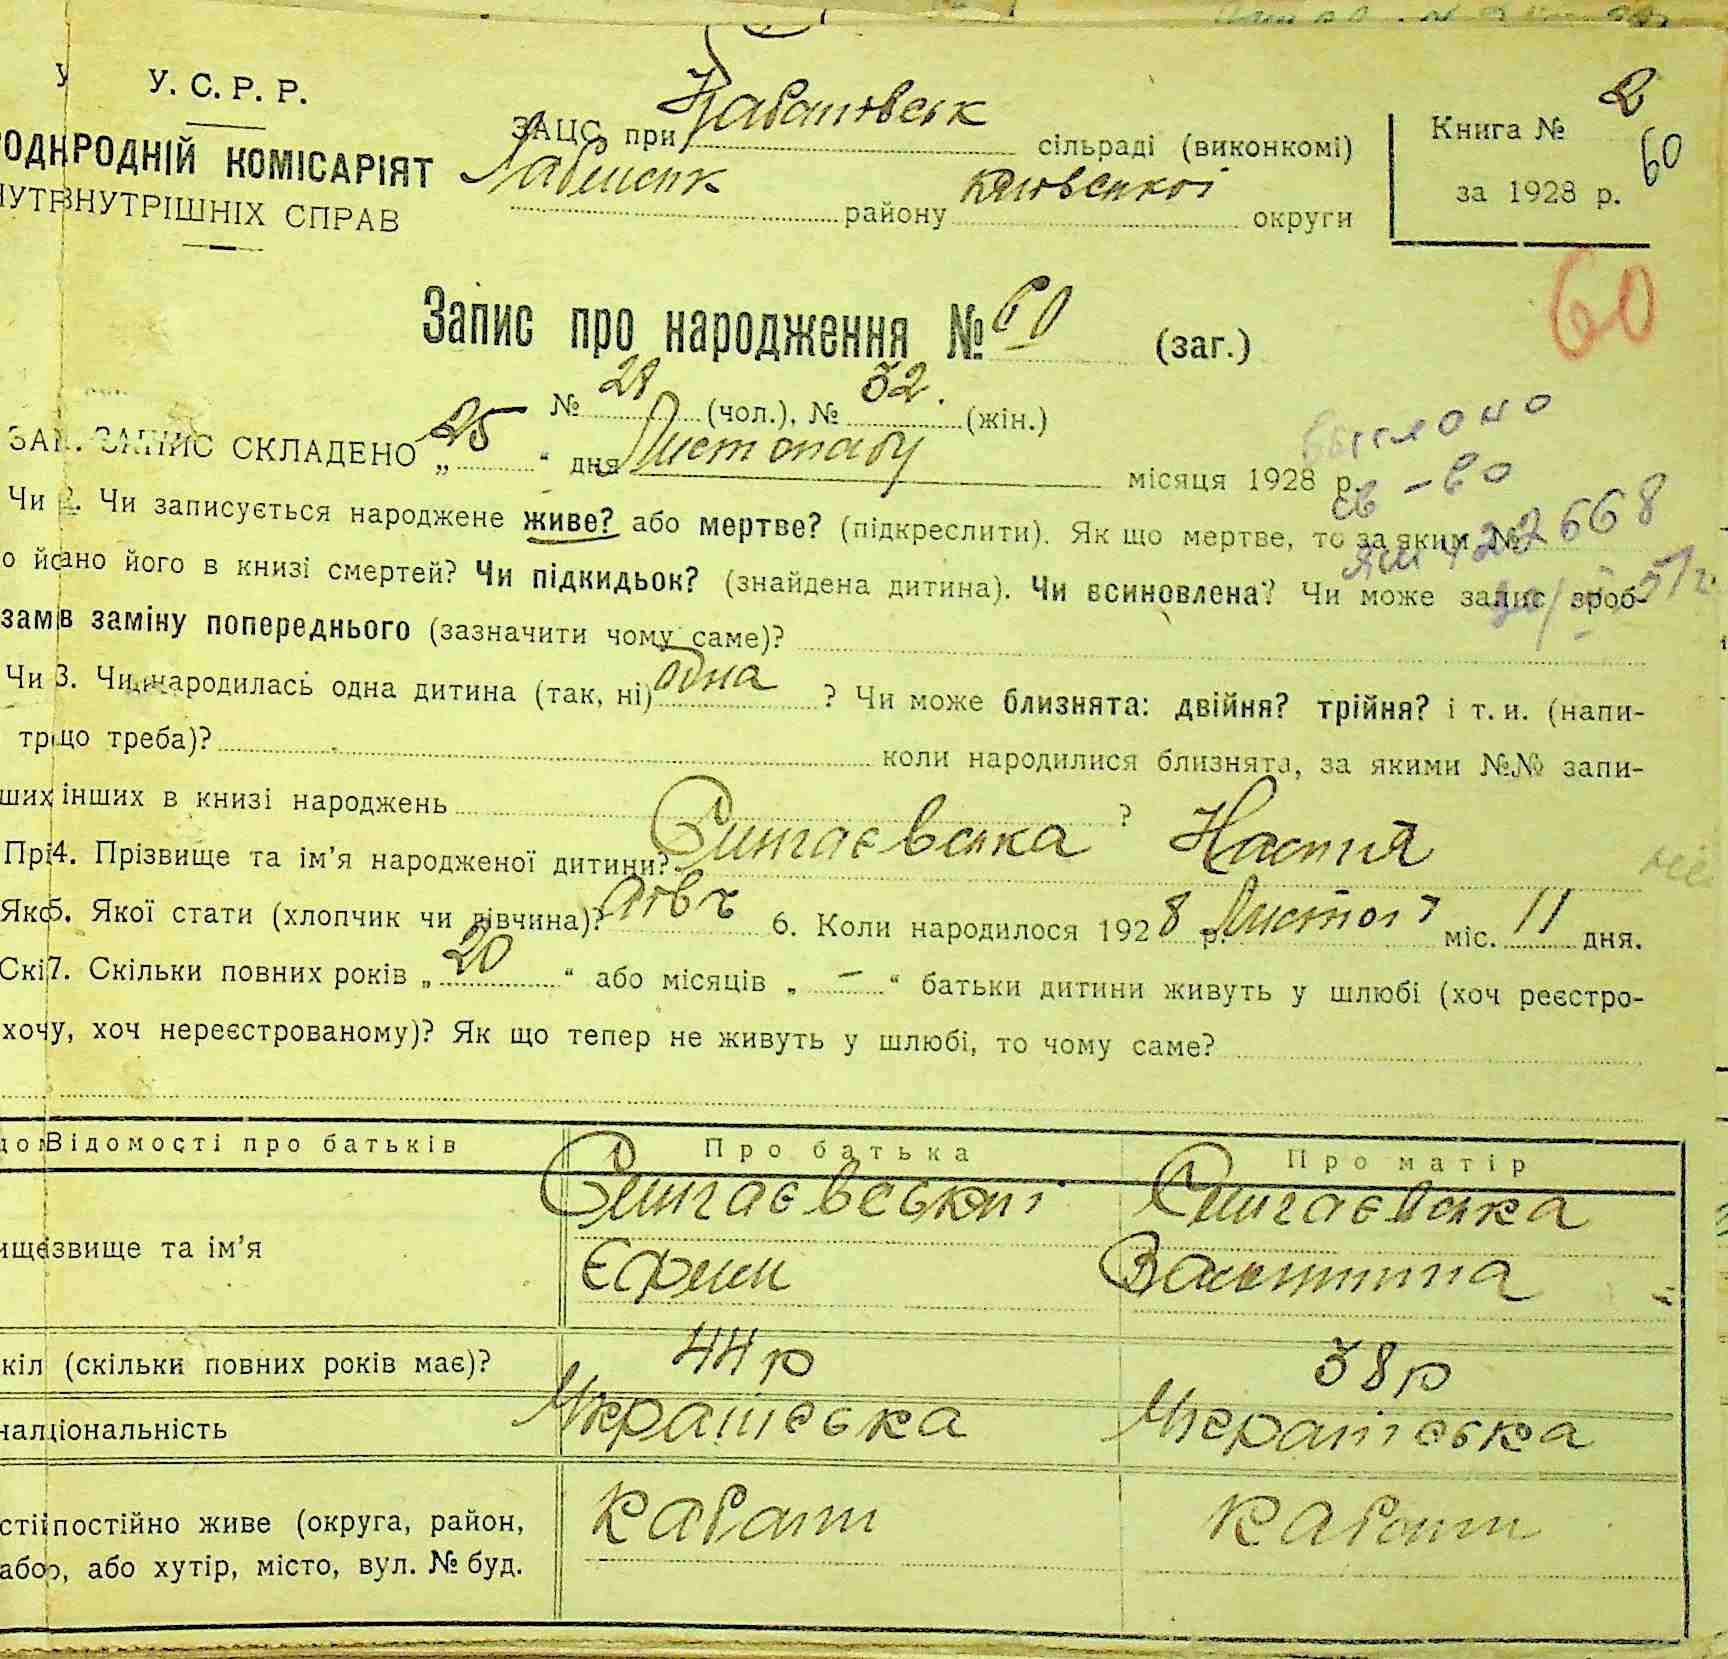 У. С. Р. Р.
РОДНІЙ КОМІСАРІЯТ
ВНУТРІШНІХ СПРАВ
ЗАЦС при Кабанівськ сільраді (виконкомі)
району київської округи
Книга № 2
60
за 1928 р.
Запис про народження № 60 (заг.)
60
№ 28 (чол.), № 32. (жін.)
ЗАПИС СКЛАДЕНО „ 25 “ дня Листопаду місяця 1928 р.
св-во
51 г.
2. Чи записується народжене живе? або мертве? (підкреслити). Як що мертве, то за яким №
ано його в книзі смертей? Чи підкидьок? (знайдена дитина). Чи всиновлена? Чи може запис зроб-
в заміну попереднього (зазначити чому саме)?
3. Чи народилась одна дитина (так, ні) одна ? Чи може близнята: двійня? трійня? і т. и. (напи-
що треба)? коли народилися близнята, за якими №№ запи-
інших в книзі народжень ?
4. Прізвище та ім’я народженої дитини? Сингаєвська Настя
5. Якої стати (хлопчик чи дівчина)? дівч 6. Коли народилося 1928 р. Листоп міс. 11 дня.
7. Скільки повних років „ 20 “ або місяців „ — “ батьки дитини живуть у шлюбі (хоч реєстро-
у, хоч нереєстрованому)? Як що тепер не живуть у шлюбі, то чому саме?
Відомості про батьків Про батька Про матір
звище та ім’я Сингаєвський Сингаєвська
Єфим Валентина
кіл (скільки повних років має)? 44 р 38 р
національність Українська Українська
постійно живе (округа, район, Кабани Кабани
або хутір, місто, вул. № буд.